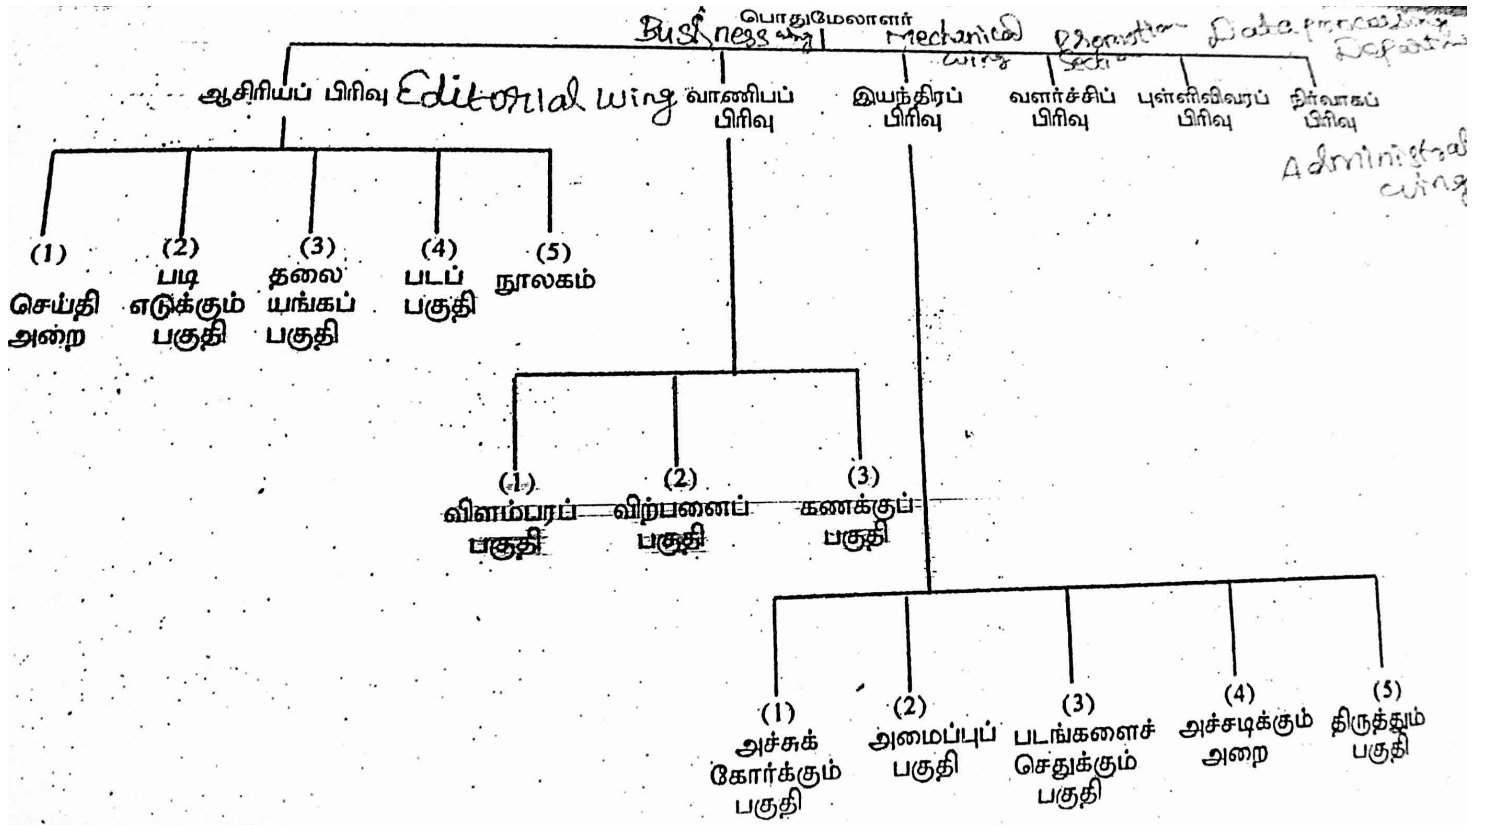 பொதுமேலாளர்
Business wing
Mechanical wing
Promotion
Data processing
ஆசிரியப் பிரிவு Editorial wing
வாணிபப்
பிரிவு
இயந்திரப்
பிரிவு
வளர்ச்சிப்
பிரிவு
புள்ளிவிவரப்
பிரிவு
நிர்வாகப்
பிரிவு
wing
(1)
செய்தி
அறை
(2)
படி
எடுக்கும்
பகுதி
(3)
தலை
யங்கப்
பகுதி
(4)
படப்
பகுதி
(5)
நூலகம்
(1)
விளம்பரப்
பகுதி
(2)
விற்பனைப்
பகுதி
(3)
கணக்குப்
பகுதி
(1)
அச்சுக்
கோர்க்கும்
பகுதி
(2)
அமைப்புப்
பகுதி
(3)
படங்களைச்
செதுக்கும்
பகுதி
(4)
அச்சடிக்கும்
அறை
(5)
திருத்தும்
பகுதி